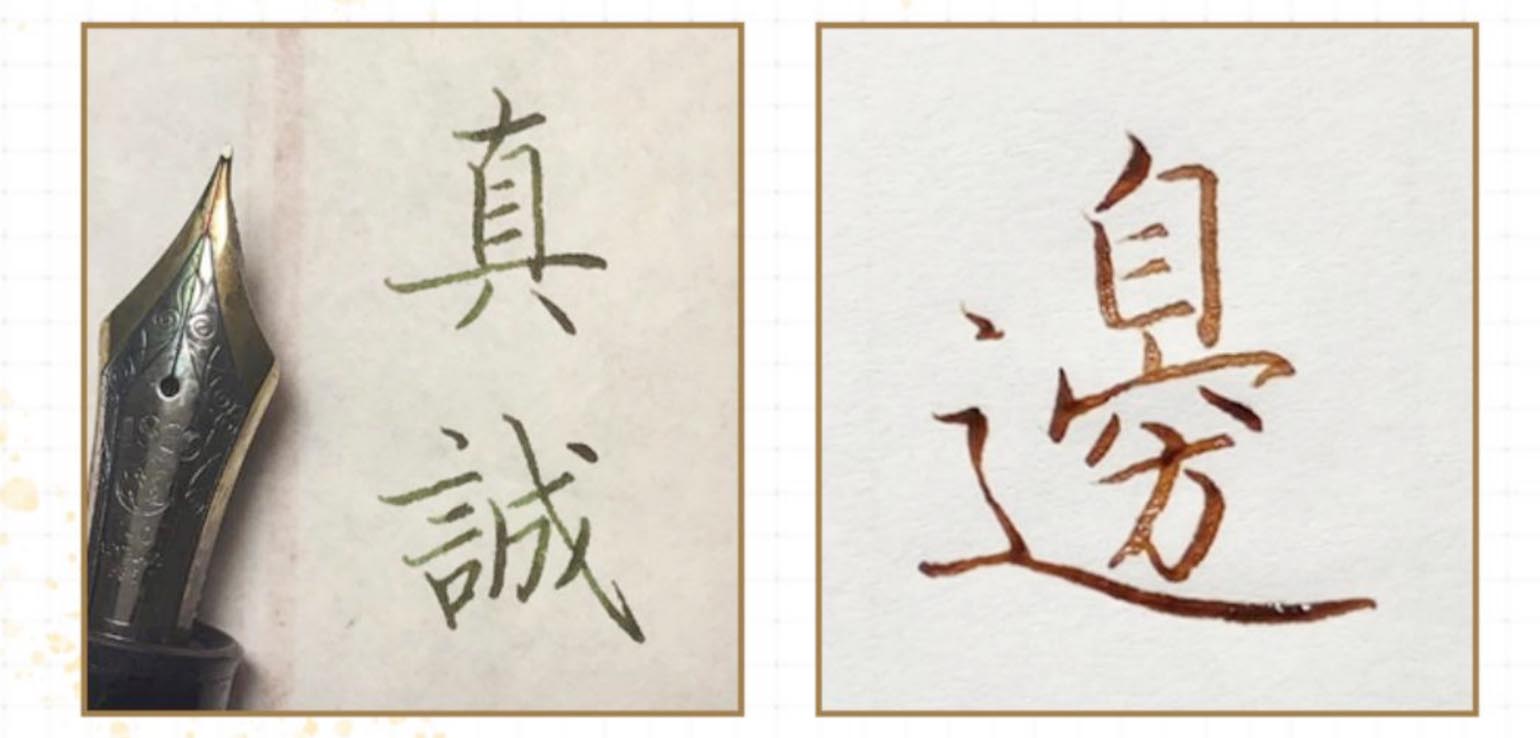 真
誠
邊